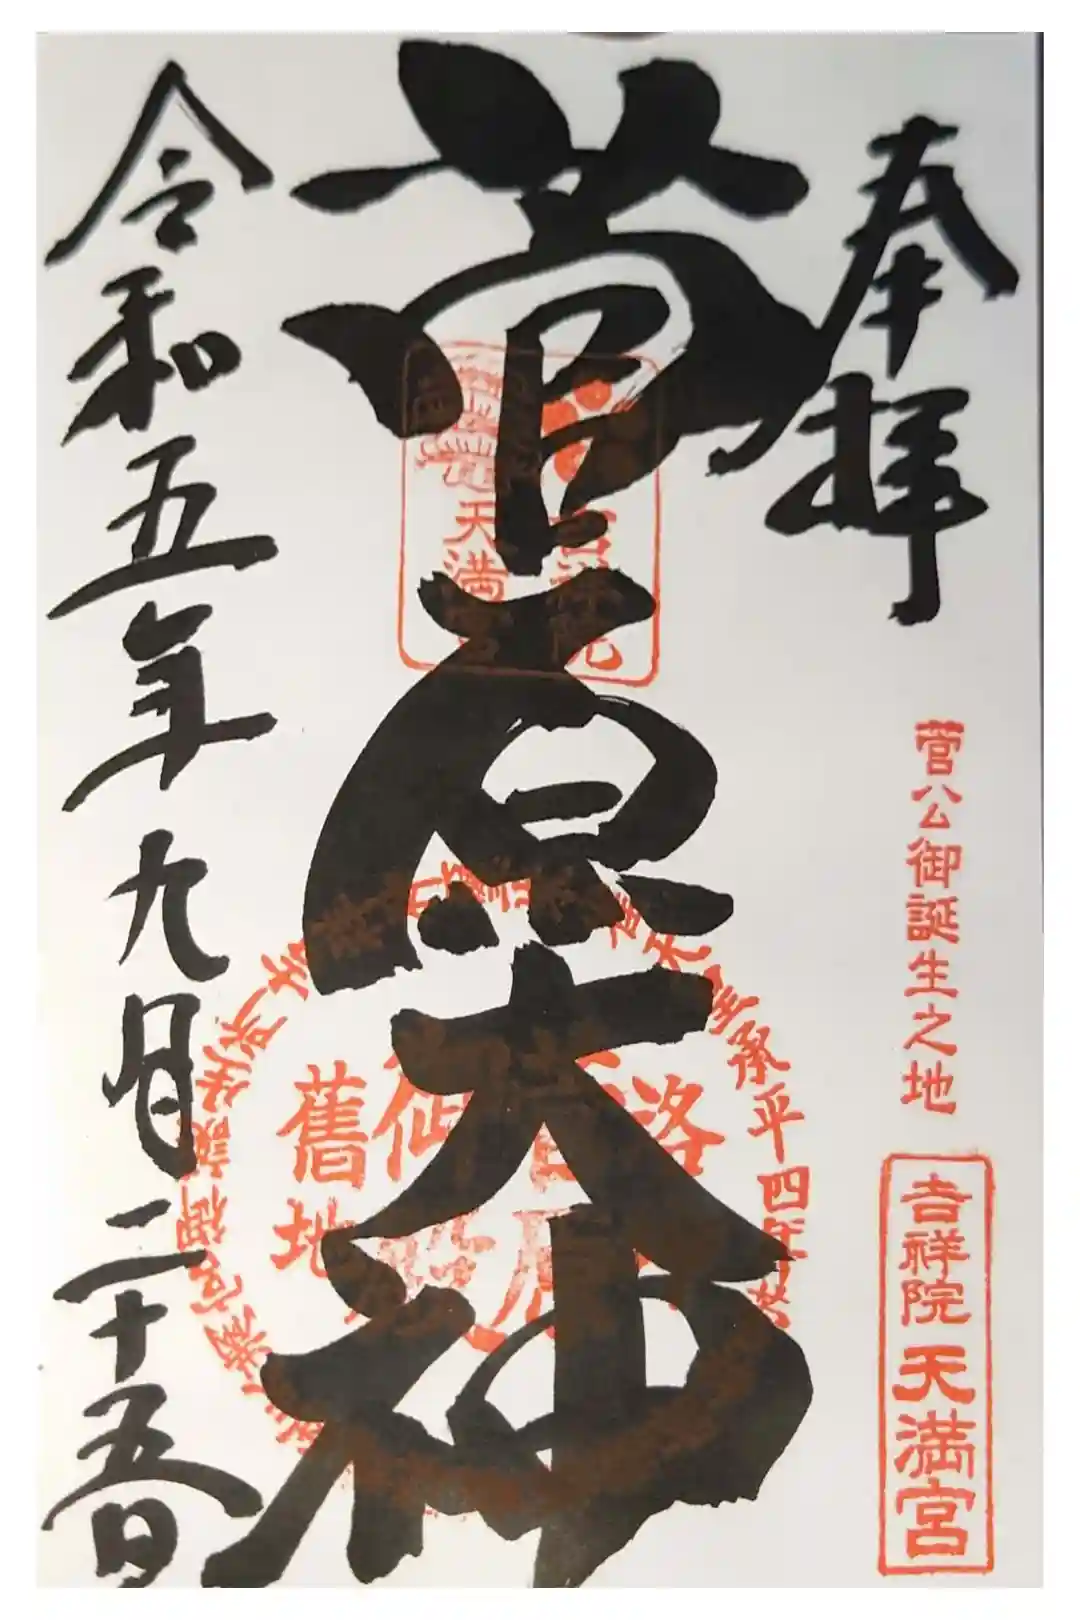 奉拝
菅公御誕生之地
吉祥院天満宮
菅原大神
吉祥院
天満宮
舊地
承平四年
令和五年九月二十五日